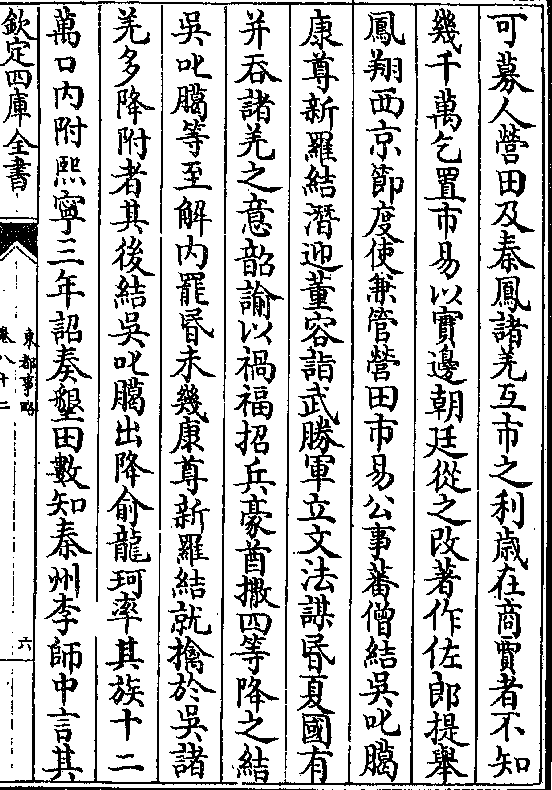 可募人營田及秦鳳諸羌互市之利歲在商賈者不知
幾千萬乞置市易以實邊朝廷從之改著作佐郎提舉
鳳翔西京節度使兼管營田市易公事蕃僧結吳叱臈
康尊新羅結潛迎董容詣武勝軍立文法謀昬夏國有
并吞諸羌之意韶諭以禍福招兵豪酋撒四等降之結
吳叱臈等至解內罷昬未幾康尊新羅結就擒於吳諸
羌多降附者其後結吳叱臈出降俞龍珂率其族十二
萬口內附熙寧三年詔奏墾田數知秦州李師中言其
欽定四庫全書
東都事略
卷八十二
六